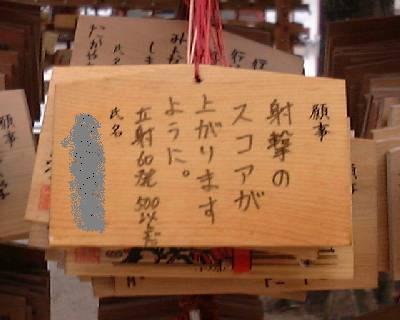 願事
射撃の
スコアが
上がります
ように。
立射60発 500以上だ
氏名
願事